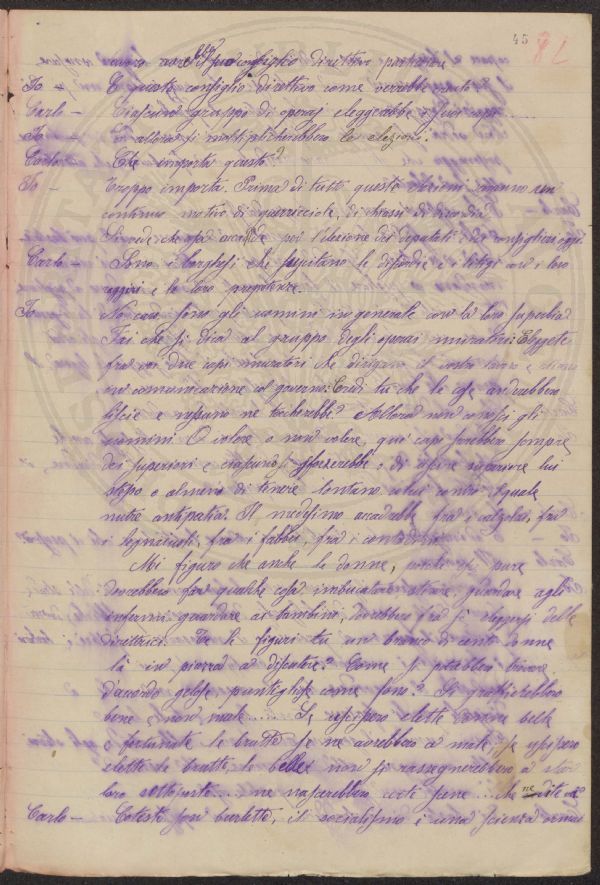 45 78
avrebbe il suo consiglio direttivo particolare
Io – E questo consiglio direttivo come verrebbe
Carlo – Ciascun gruppo di operaj eleggerebbe i suoi capi.
Io – E allora si moltiplicherebbero le elezioni.
Carlo – Che importa questo?
Io – Troppo importa. Prima di tutto queste elezioni saranno un
continuo motivo di guerricciole, di chiassi, di discordia
Si vede che già accade per l'elezione dei deputati e dei consiglieri
Carlo – Sono i borghesi che suscitano le discordie e i litigi con i loro
raggiri e le loro prepotenze.
Io – No caro, sono gli uomini in generale con la loro superbia
Fai che si dica al gruppo degli operai muratori: Eleggete
fra voi due capi muratori che dirigano il vostro lavoro e
in comunicazione col governo: Credi tu che le cose andrebbero
liscie e nessuno ne Allora non conosci gli
uomini. O volere o non volere, que' capi sarebbero sempre
dei superiori e ciascuno si sforzerebbe o di essere superiore lui
stesso o almeno di tenere lontano colui contro il quale
nutre antipatia. Il medesimo accadrebbe fra i calzolai, fra
i legnaiuoli, fra i fabbri, fra i contadini.
Mi figuro che anche le donne, pure
dovrebbero far qualche cosa imbucatare, stirare, guardare agli
infermi guardare ai bambini, dovrebbero fra sè eleggersi delle
direttrici. Te le figuri tu un branco di cento donne
là in piazza a discutere? Come si potrebbero trovare
d'accordo gelose puntigliose come sono? Si
bene e non male.... Se fossero elette donne belle
e fortunate le brutte se ne avrebbero a male, se fossero
elette le brutte, le belle non si rassegnerebbero a star
loro sottoposte.... ne nascerebbero certe scene ... che
Carlo – Coteste son burlette, il socialismo è una scienza ormai